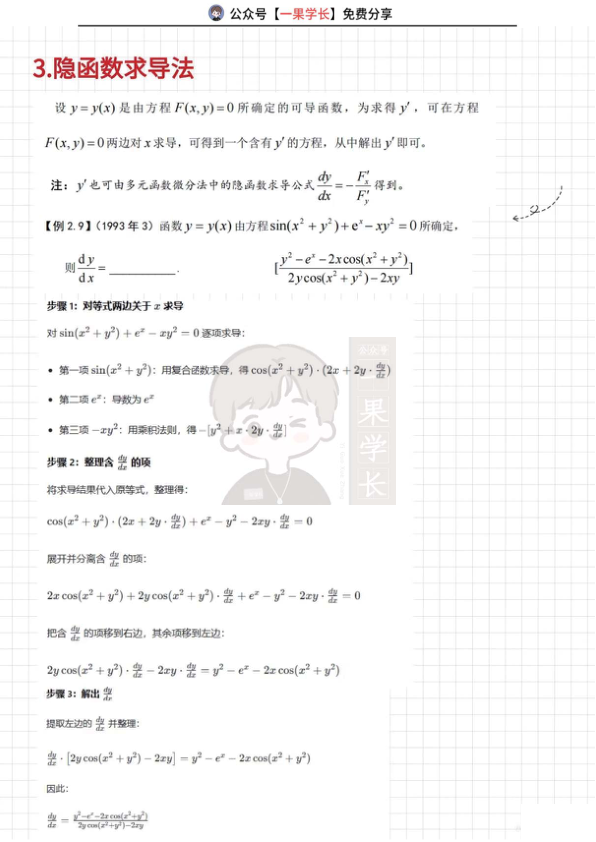 公众号【一果学长】免费分享
3.隐函数求导法
设 y = y(x) 是由方程 F(x, y) = 0 所确定的可导函数，为求得 y′，可在方程
F(x, y) = 0 两边对 x 求导，可得到一个含有 y′ 的方程，从中解出 y′ 即可。
注：y′ 也可由多元函数微分法中的隐函数求导公式 dy/dx = −F′ₓ/F′ᵧ 得到。
【例 2.9】(1993 年 3) 函数 y = y(x) 由方程 sin(x² + y²) + eˣ − xy² = 0 所确定，
则 dy/dx = ________. [(y² − eˣ − 2x cos(x² + y²))/(2y cos(x² + y²) − 2xy)]
步骤 1：对等式两边关于 x 求导
对 sin(x² + y²) + eˣ − xy² = 0 逐项求导：
• 第一项 sin(x² + y²)：用复合函数求导，得 cos(x² + y²) · (2x + 2y · dy/dx)
• 第二项 eˣ：导数为 eˣ
• 第三项 −xy²：用乘积法则，得 −[y² + x · 2y · dy/dx]
步骤 2：整理含 dy/dx 的项
将求导结果代入原等式，整理得：
cos(x² + y²) · (2x + 2y · dy/dx) + eˣ − y² − 2xy · dy/dx = 0
展开并分离含 dy/dx 的项：
2x cos(x² + y²) + 2y cos(x² + y²) · dy/dx + eˣ − y² − 2xy · dy/dx = 0
把含 dy/dx 的项移到右边，其余项移到左边：
2y cos(x² + y²) · dy/dx − 2xy · dy/dx = y² − eˣ − 2x cos(x² + y²)
步骤 3：解出 dy/dx
提取左边的 dy/dx 并整理：
dy/dx · [2y cos(x² + y²) − 2xy] = y² − eˣ − 2x cos(x² + y²)
因此：
dy/dx = (y² − eˣ − 2x cos(x² + y²))/(2y cos(x² + y²) − 2xy)
公众号
一果学长